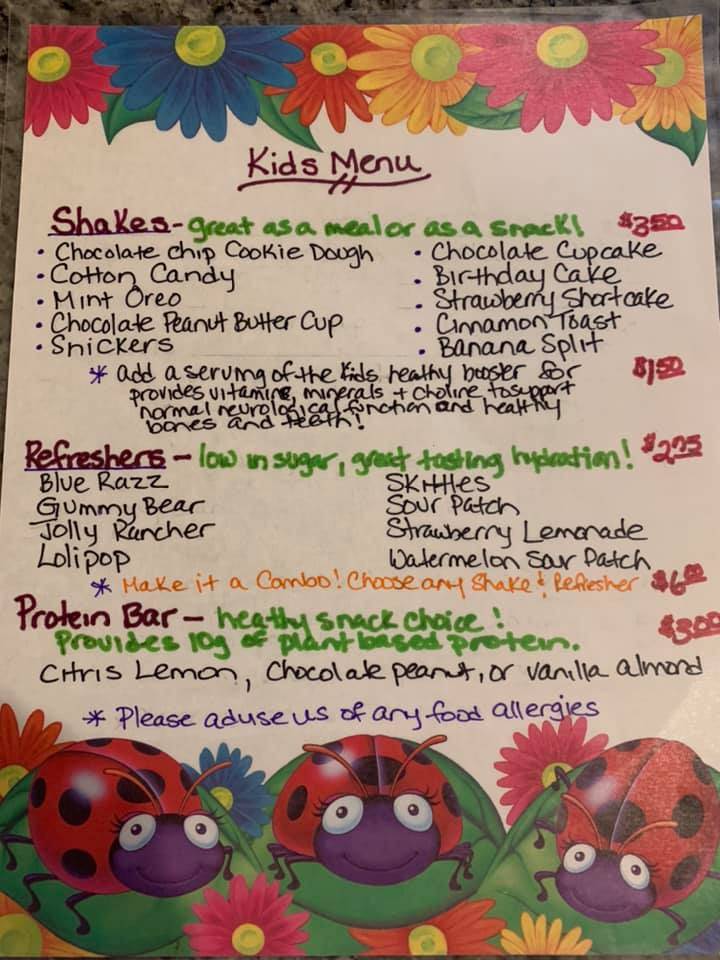 Kids Menu
Shakes - great as a meal or as a snack! $3.50
• Chocolate Chip Cookie Dough • Chocolate Cupcake
• Cotton Candy • Birthday Cake
• Mint Oreo • Strawberry Shortcake
• Chocolate Peanut Butter Cup • Cinnamon Toast
• Snickers • Banana Split
* add a serving of the kids heathy booster for $1.50
provides vitamins, minerals + choline to support
normal neurological function and healthy
bones and teeth!
Refreshers - low in sugar, great tasting hydration! $2.75
Blue Razz Skittles
Gummy Bear Sour Patch
Jolly Rancher Strawberry Lemonade
Lolipop Watermelon Sour Patch
* Make it a Combo! Choose any Shake & Refresher $6.00
Protein Bar - heathy snack choice! $3.00
Provides 10g of plant based protein.
Citris Lemon, Chocolate peanut, or vanilla almond
* Please advise us of any food allergies